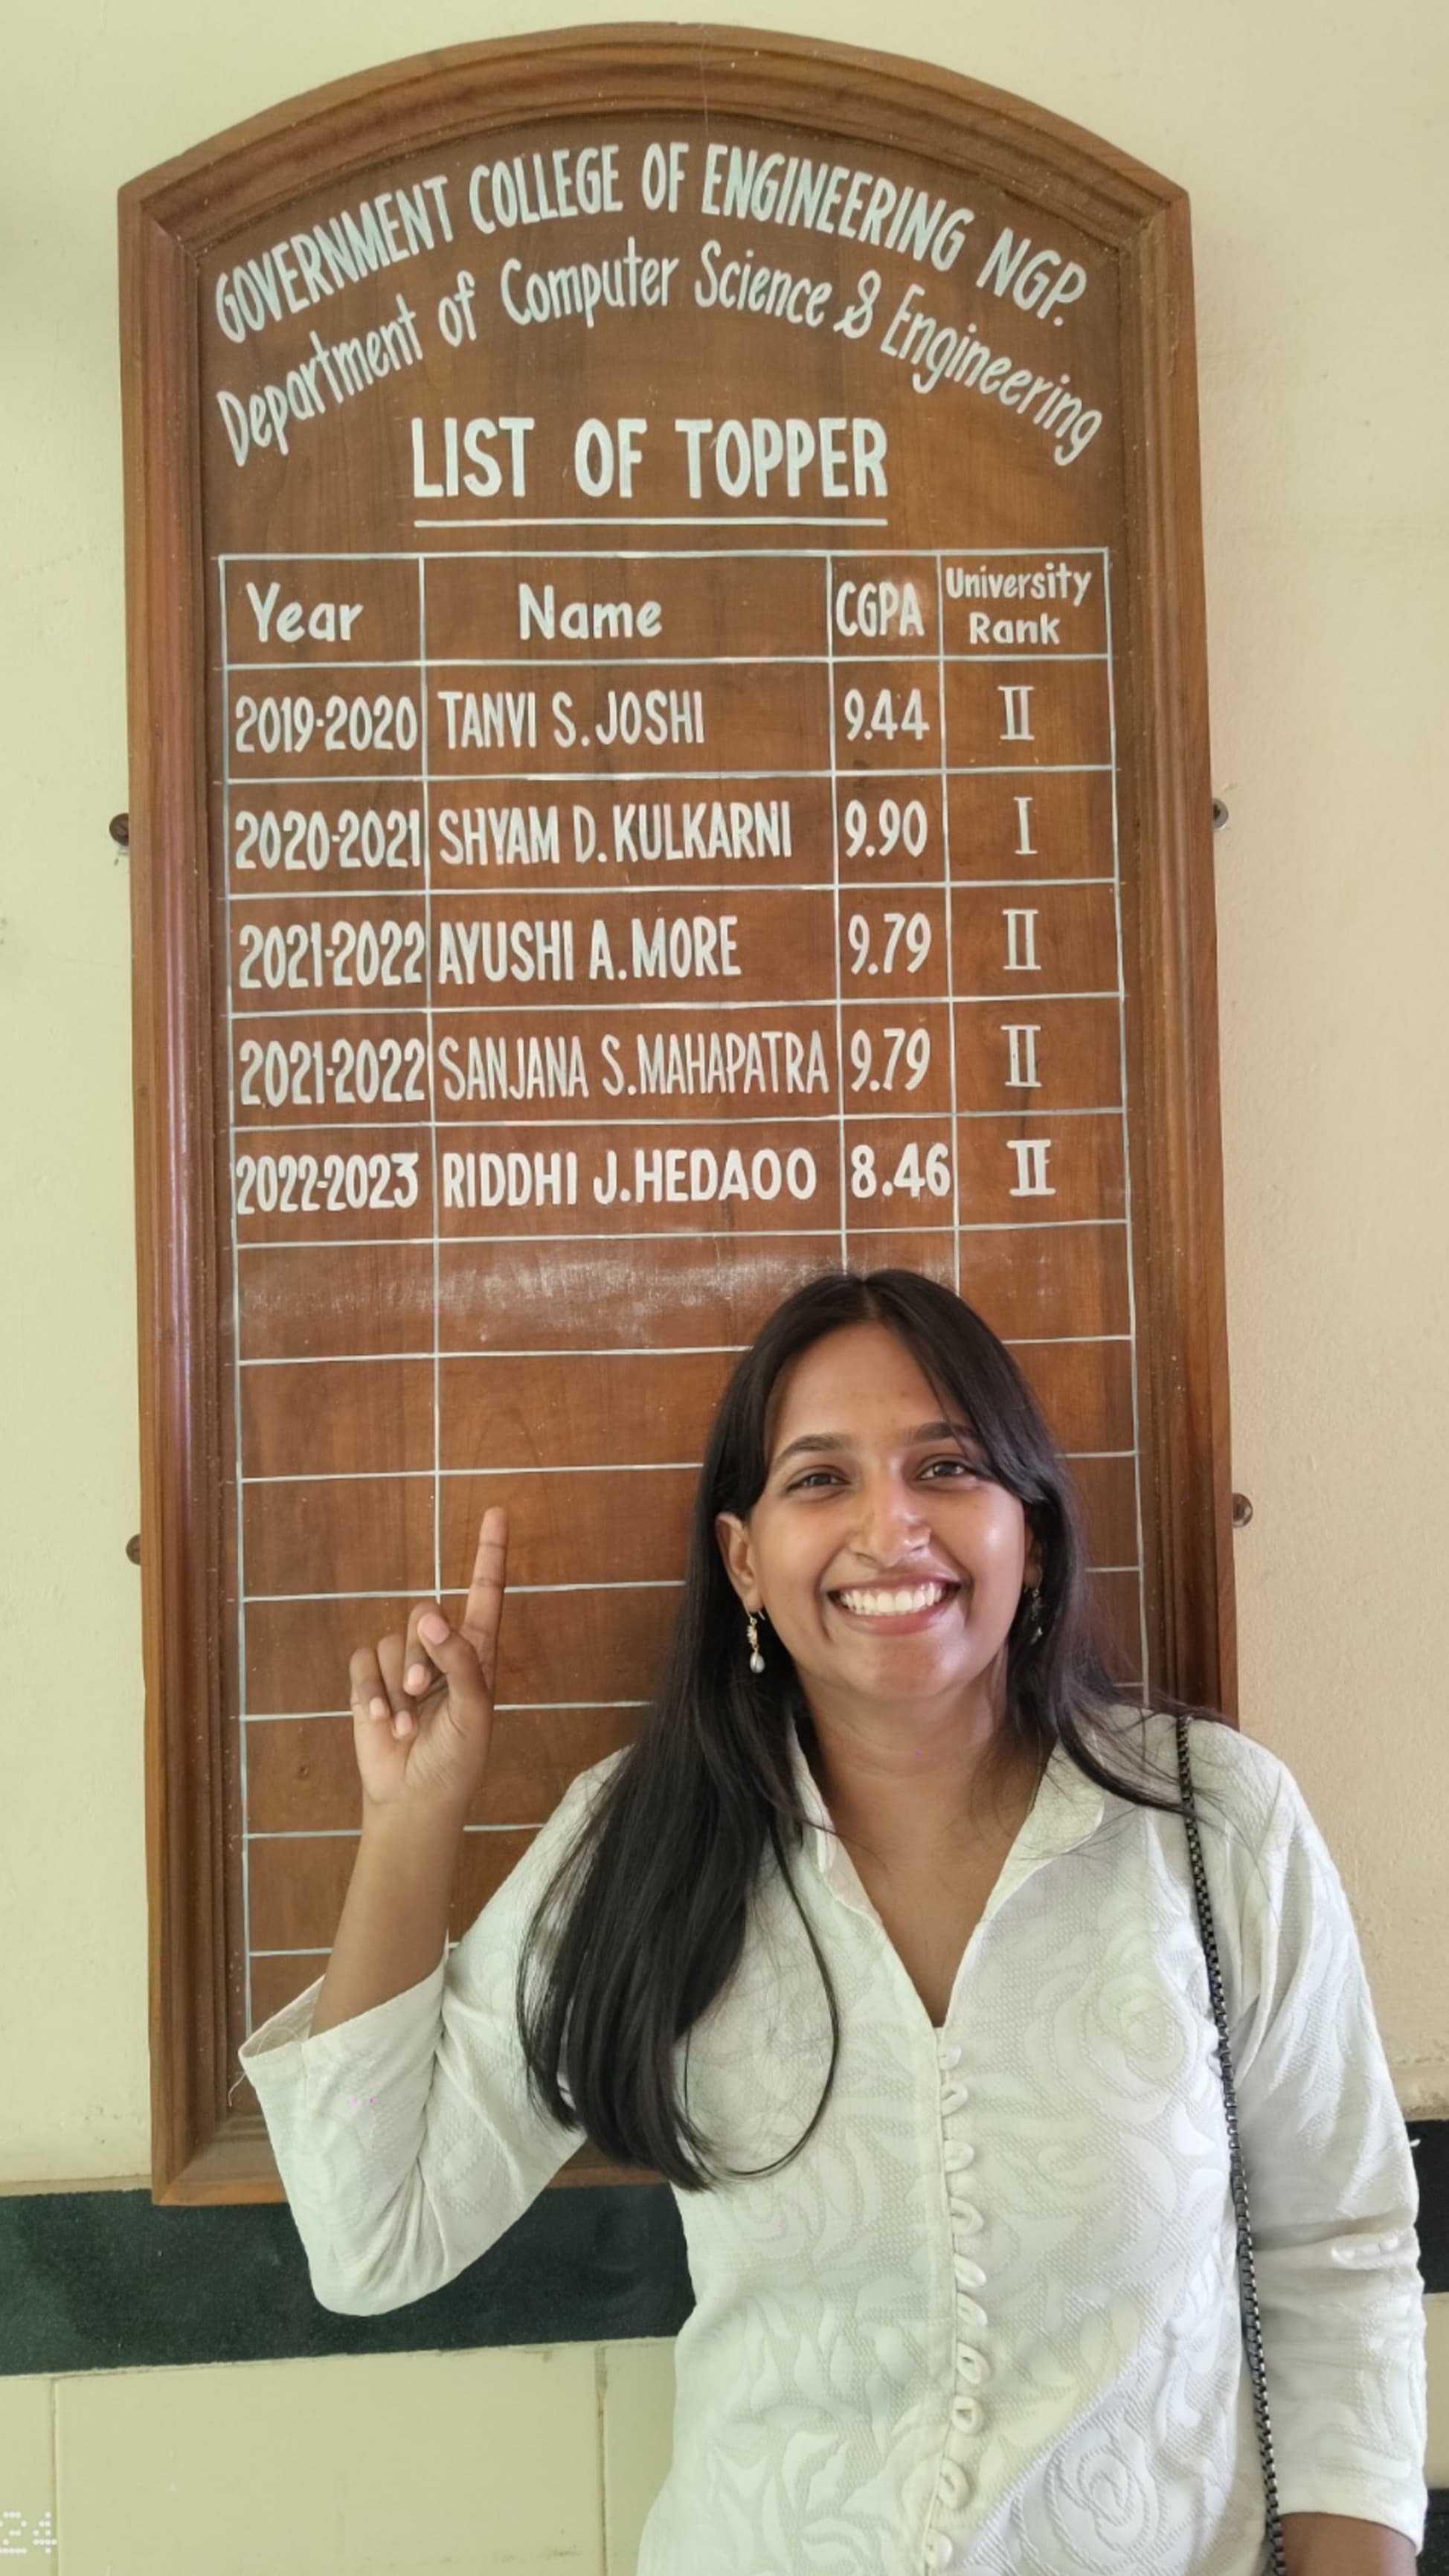 GOVERNMENT COLLEGE OF ENGINEERING NGP.
Department of Computer Science & Engineering
LIST OF TOPPER
Year Name CGPA University Rank
2019-2020 TANVI S. JOSHI 9.44 II
2020-2021 SHYAM D. KULKARNI 9.90 I
2021-2022 AYUSHI A. MORE 9.79 II
2021-2022 SANJANA S. MAHAPATRA 9.79 II
2022-2023 RIDDHI J. HEDAOO 8.46 II
24